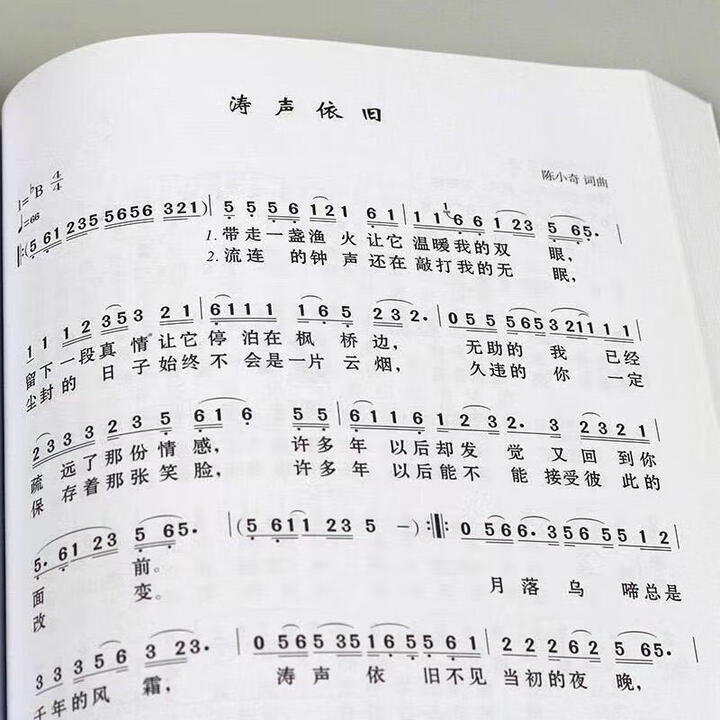 涛声依旧
陈小奇 词曲
1=♭B 4/4
♩=66
‖:(5 61 235 5656 321) | 5 5 5 6 121 61 | 1 1 1 6 6 1 23 5 65. |
1. 带走一盏渔 火让它 温暖我的双 眼,
2. 流连 的钟 声还在 敲打我的无 眠,
1 1 1 2 353 21 | 6111 1 65 232. | 055 565321 1 1 |
留下一段真 情让它 停 泊在枫 桥边, 无助的 我 已经
尘封的 日 子始终不 会是一片 云烟, 久违的 你 一定
2333 235 61 6 55 | 6116 12 32. 23221 |
疏 远了那份情 感, 许多年 以后却发 觉 又回 到你
保 存着那张笑 脸, 许多年 以后能不 能 接受彼 此的
5. 61 23 5 65. | (5 611 23 5 –) :‖: 0566.356.5512 |
面 前。 月落乌 啼总是
改 变。
3 3 3 5 6 3 23. | 0 56 535 165 561 | 222 62 2 5 6. |
千年的风 霜, 涛声 依 旧不见 当初的夜 晚,